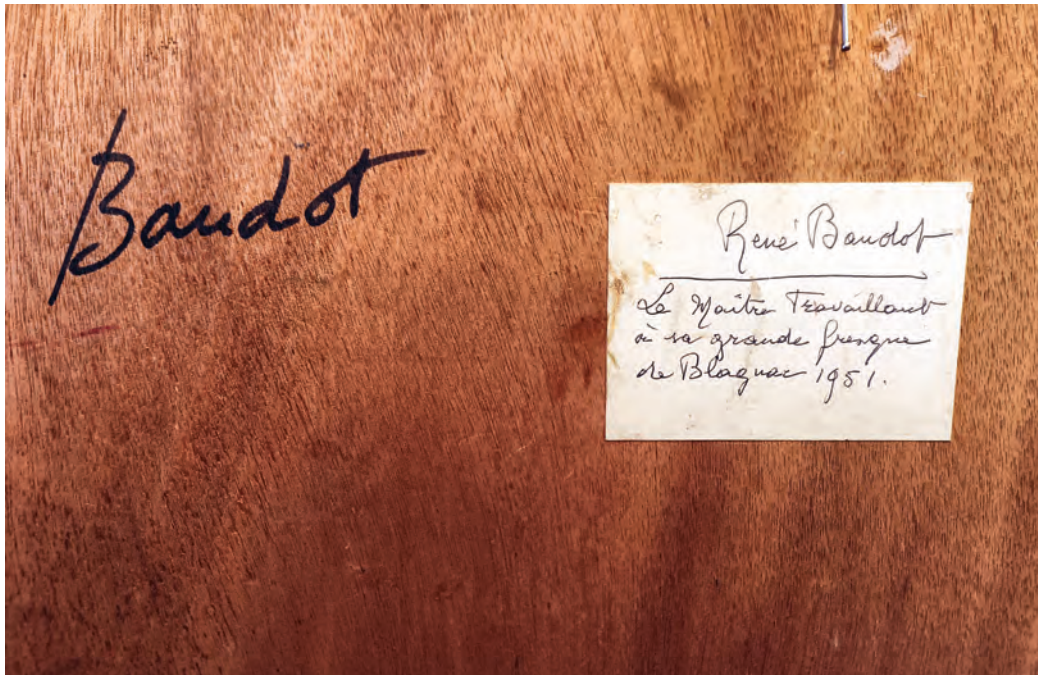 Baudot
René Baudot
Le Maître Travaillant
à sa grande fresque
de Blagnac 1951.